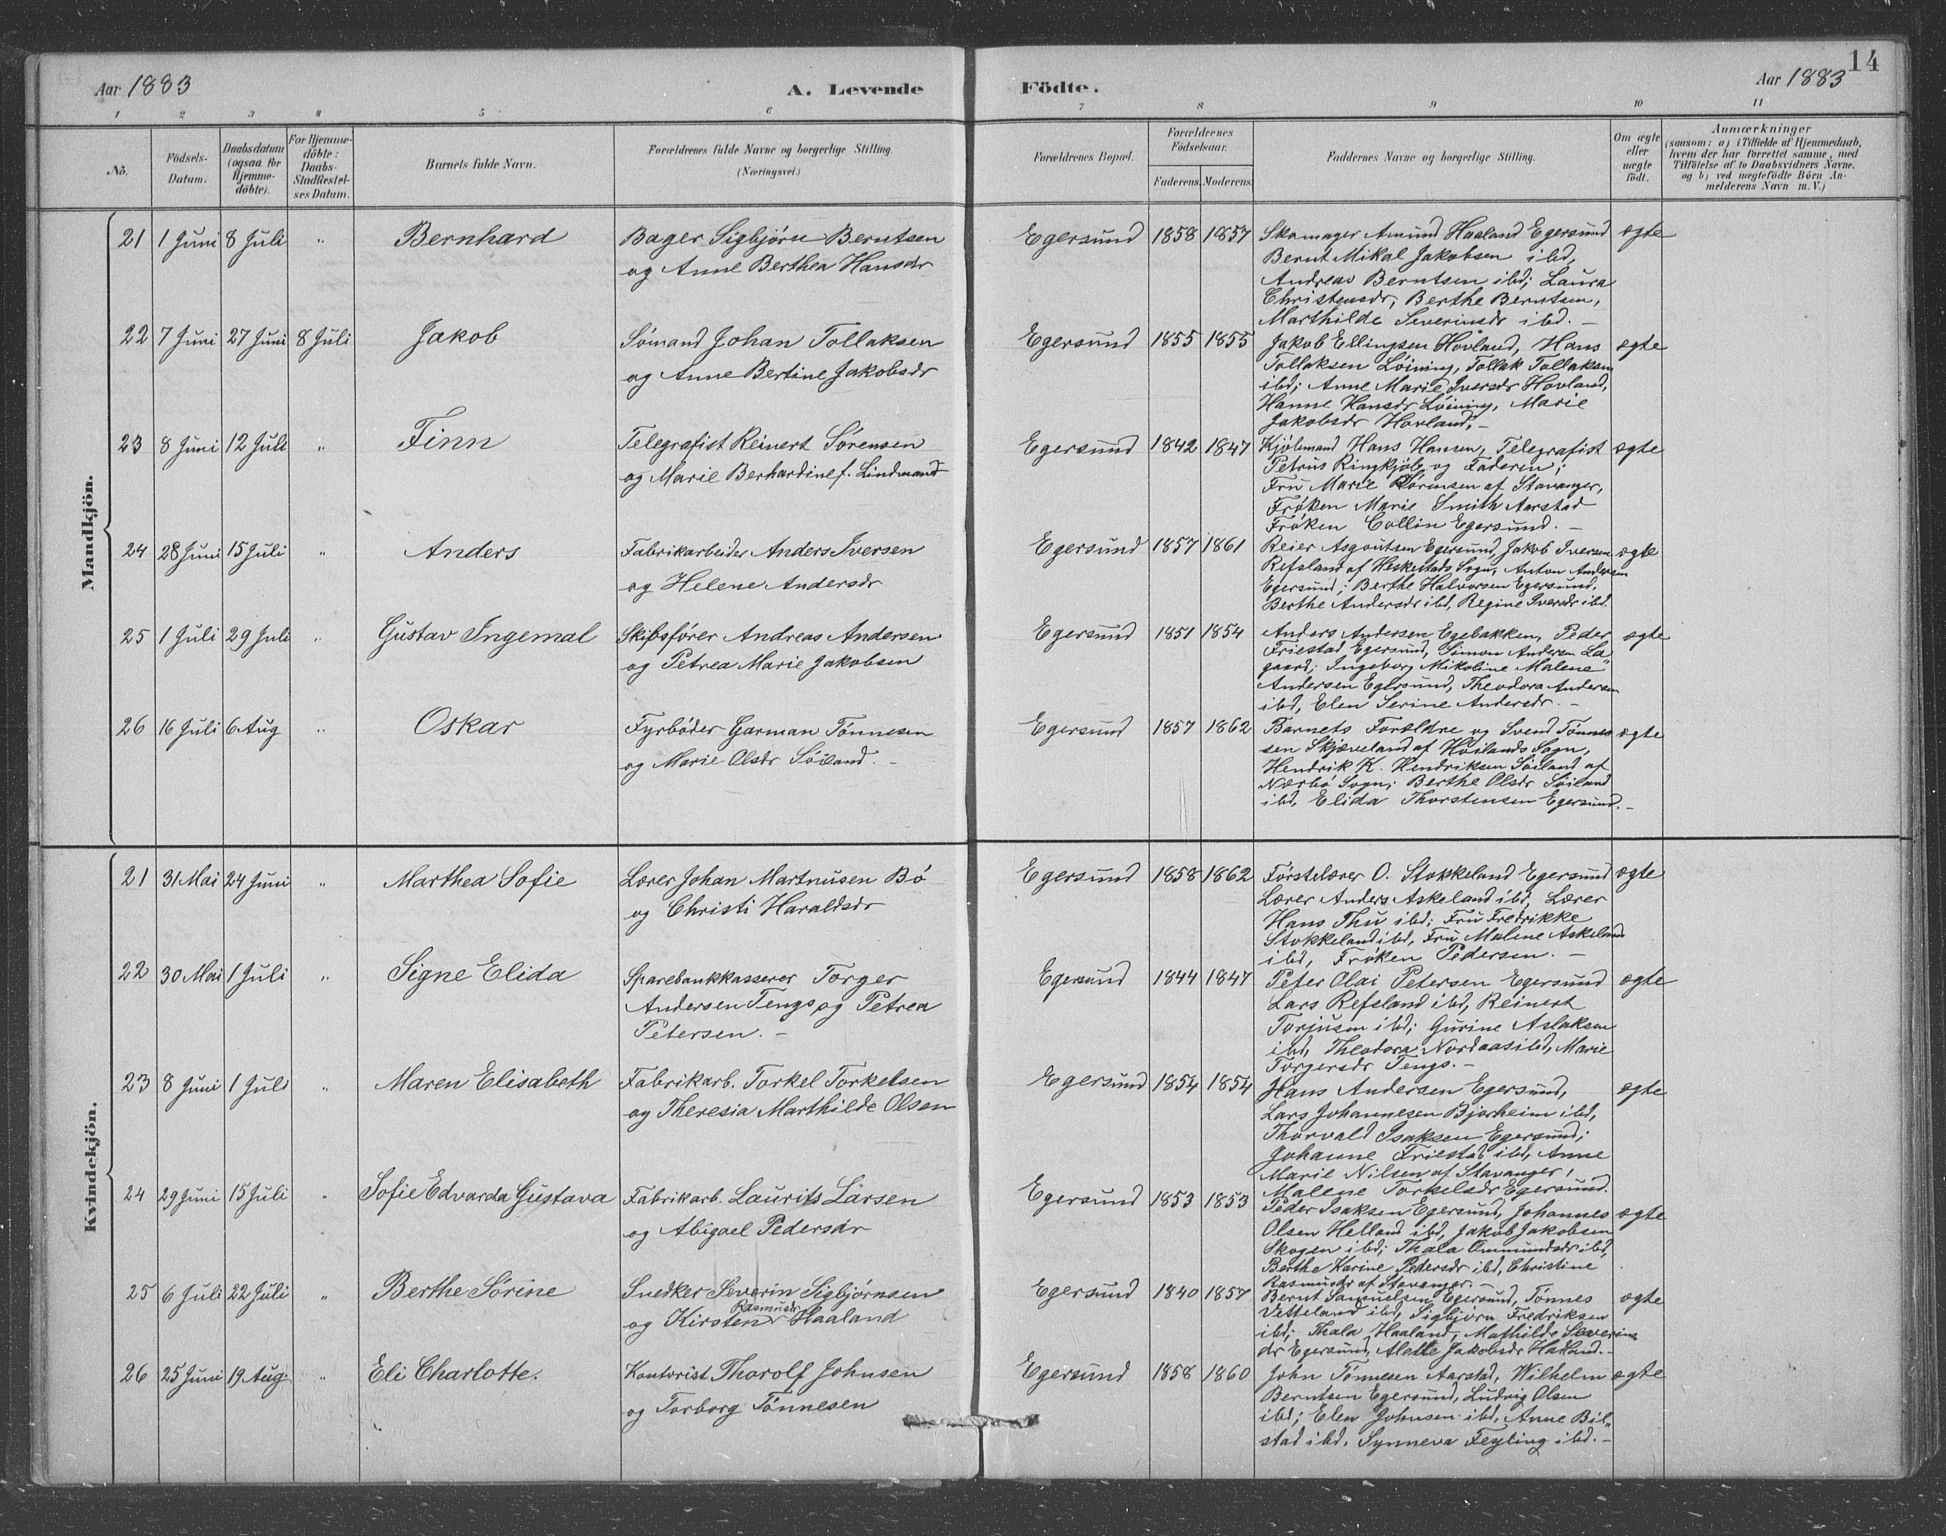 14
Aar 1883
A. Levende Födte.
Aar 1883
1 2 3 4 5 6 7 8 9 10 11
No.
Födsels-Datum.
Daabsdatum (ogsaa for Hjemmedöbte).
For Hjemmedöbte: Daabs-Stadfæstelses Datum.
Barnets fulde Navn.
Forældrenes fulde Navne og borgerlige Stilling. (Næringsvei.)
Forældrenes Bopæl.
Forældrenes Födselsaar.
Faderens.
Moderens.
Faddernes Navne og borgerlige Stilling.
Om ægte eller uægte födt.
Anmærkninger
(saasom: a) i Tilfælde af Hjemmedaab, hvem der har forrettet samme, med Tilföielse af to Daabsvidners Navne, og b) ved uægtefödte Börn Anmelderens Navn m. V.)
Mandkjön.
21 1 Juni 8 Juli " Bernhard
Bager Sigbjørn Berntsen
og Anne Berthea Hansdr
Egersund 1858 1857
Skomager Amund Haaland Egersund
Bernt Mikal Jakobsen ibd,
Andreas Berntsen ibd; Laura
Christensdr, Berthe Berntsen,
Marthilde Severinsdr ibd. –
ægte
22 7 Juni 27 Juni 8 Juli Jakob
Sømand Johan Tollaksen
og Anne Bertine Jakobsdr
Egersund 1855 1855
Jakob Ellingsen Hovland, Hans
Tollaksen Løining, Tollak Tollaksen
ibd; Anne Marie Iversdr Hovland,
Hanne Hansdr Løining, Marie
Jakobsdr Hovland. –
ægte
23 8 Juni 12 Juli " Finn
Telegrafist Reinert Sørensen
og Marie Berhardine f. Lindmand
Egersund 1842 1847
Kjøbmand Hans Hansen, Telegrafist
Petrus Ringkjøb og Faderen;
Fru Marie Sørensen af Stavanger,
Frøken Marie Smith Aarstad
Frøken Collin Egersund. –
ægte
24 28 Juni 15 Juli " Anders
Fabrikarbeider Anders Iversen
og Helene Andersdr
Egersund 1857 1861
Reier Asgautsen Egersund, Jakob Iversen
Refsland af Heskestads Sogn, Anton Andersen
Egersund; Berthe Halvorsen Egersund,
Berthe Andersdr ibd, Regine Iversdr ibd.
ægte
25 1 Juli 29 Juli " Gustav Ingemal
Skibsfører Andreas Andersen
og Petrea Marie Jakobsen
Egersund 1851 1854
Anders Andersen Egebakken, Peder
Friestad Egersund, Simon Andersen La
gaard; Ingeborg Mikoline Malene
Andersen Egersund, Theodora Andersen
ibd, Elen Serine Andersdr. –
ægte
26 16 Juli 6 Aug " Oskar
Fyrbøder Garman Tønnesen
og Marie Olsdr Søiland. –
Egersund 1857 1862
Barnets Forældre og Svend Tønnes
sen Skjæveland af Høilands Sogn,
Hendrik K. Hendriksen Søiland af
Nærbø Sogn; Berthe Olsdr Søiland
ibd, Elida Thorstensen Egersund. –
ægte
Kvindekjön.
21 31 Mai 24 Juni " Marthea Sofie
Lærer Johan Martinusen Bø
og Christi Haraldsdr
Egersund 1858 1862
Førstelærer O. Stokkeland Egersund
Lærer Anders Askeland ibd, Lærer
Hans Thu ibd; Fru Fredrikke
Stokkeland ibd, Fru Malene Askeland
ibd, Frøken Pedersen. –
ægte
22 30 Mai 1 Juli " Signe Elida
Sparebankkasserer Torger
Andersen Tengs og Petrea
Petersen. –
Egersund 1844 1847
Peter Olai Petersen Egersund
Lars Refsland ibd, Reinert
Torjusen ibd; Gurine Aslaksen
ibd, Theodora Nordaas ibd, Marie
Torgersdr Tengs. –
ægte
23 8 Juni 1 Juli " Maren Elisabeth
Fabrikarb. Torkel Torkelsen
og Theresia Marthilde Olsen
Egersund 1854 1854
Hans Andersen Egersund,
Lars Johannesen Bjerheim ibd,
Thorvald Isaksen Egersund;
Johanne Friestad ibd, Anne
Marie Nilsen af Stavanger,
Malene Torkelsdr Egersund.
ægte
24 29 Juni 15 Juli " Sofie Edvarda Gustava
Fabrikarb. Laurits Larsen
og Abigael Pedersdr
Egersund 1853 1853
Peder Isaksen Egersund, Johannes
Olsen Helland ibd, Jakob Jakobsen
Skogen ibd; Thala Ommundsdr ibd,
Berthe Karine Pedersdr ibd, Christine
Rasmusdr af Stavanger. –
ægte
25 6 Juli 22 Juli " Berthe Sørine
Snedker Severin Sigbjørnsen
og Kirsten Rasmusdr Haaland
Egersund 1840 1857
Bernt Samuelsen Egersund, Tønnes
Vetteland ibd, Sigbjørn Fredriksen
ibd; Thala Haaland, Mathilde Severins
dr Egersund, Malene Jakobsdr Haland. –
ægte
26 25 Juni 19 Aug. " Eli Charlotte.
Kontorist Thorolf Johnsen
og Torborg Tønnesen
Egersund 1858 1860
John Tønnesen Aarstad, Wilhelm
Berntsen Egersund, Ludvig Olsen
ibd; Elen Johnsen ibd, Anne Bil-
stad ibd. Synneva Feyling ibd. –
ægte